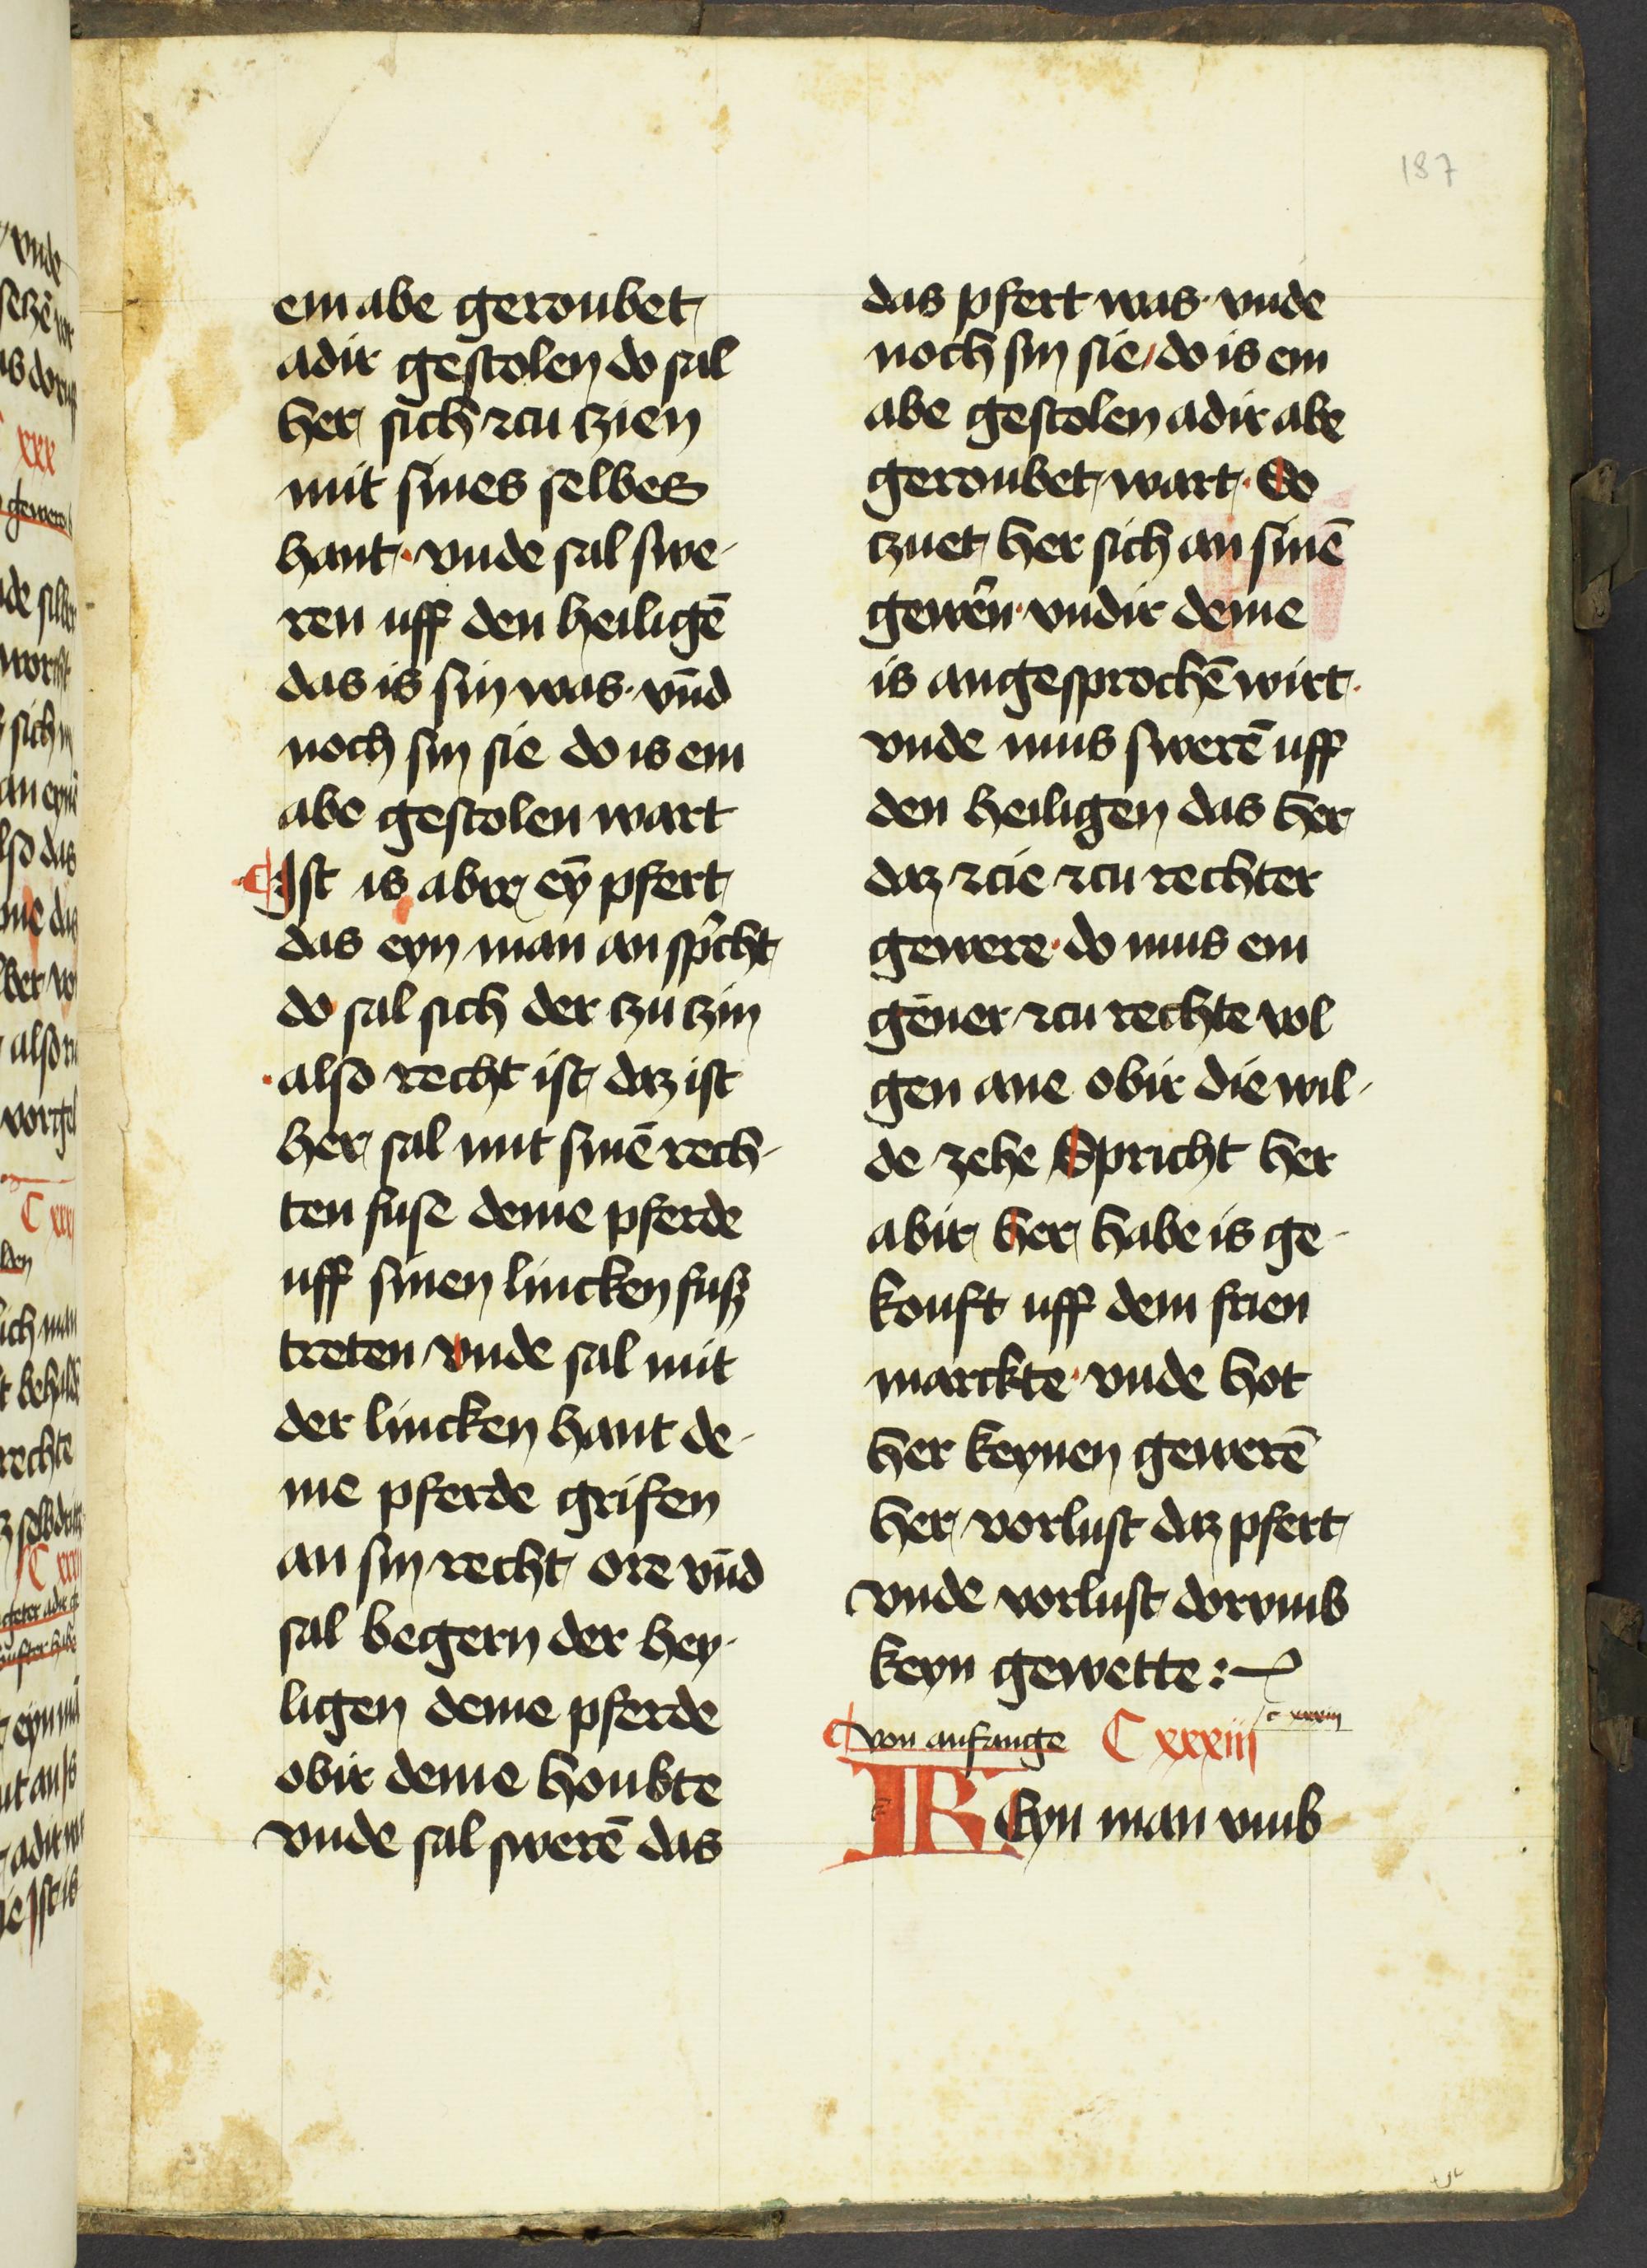 187
em abe geroubet
adir gestolen do sal
her sich zcu tzien
mit sines selbes
hant · vnde sal swe-
ren uff den heiligē
das is sin was · vn̄d
noch sin sie do is em
abe gestolen wart
Ist is abir eȳ pfert
das eyn man an spͥcht
do sal sich der tzu tzin
also recht ist daz ist
her sal mit sinē rech-
ten fuse deme pferde
uff sinen lincken fusz
treten vnde sal mit
der lincken hant de-
me pferde grifen
an sin recht ore vn̄d
sal begern der hey-
ligen deme pferde
obir deme houbte
vnde sal swerē das
das pfert was · vnde
noch sin sie / do is em
abe gestolen adir abe
geroubet wart · So
tzuet her sich an sinē
gewern · vndir deme
is angesprochē wirt ·
vnde mus swerē uff
den heiligen das her
daz zcie zcu rechter
gewere · do mus em
gener zcu rechte vol
gen ane obir die wil-
de zehe Spricht her
abir her habe is ge-
kouft uff dem frien
marckte · vnde hot
her keynen gewerē
her vorlust daz pfert
vnde vorlust dorvmb
keyn gewette :
von anfange C xxxiii
c xxxiii
Eyn man vmb